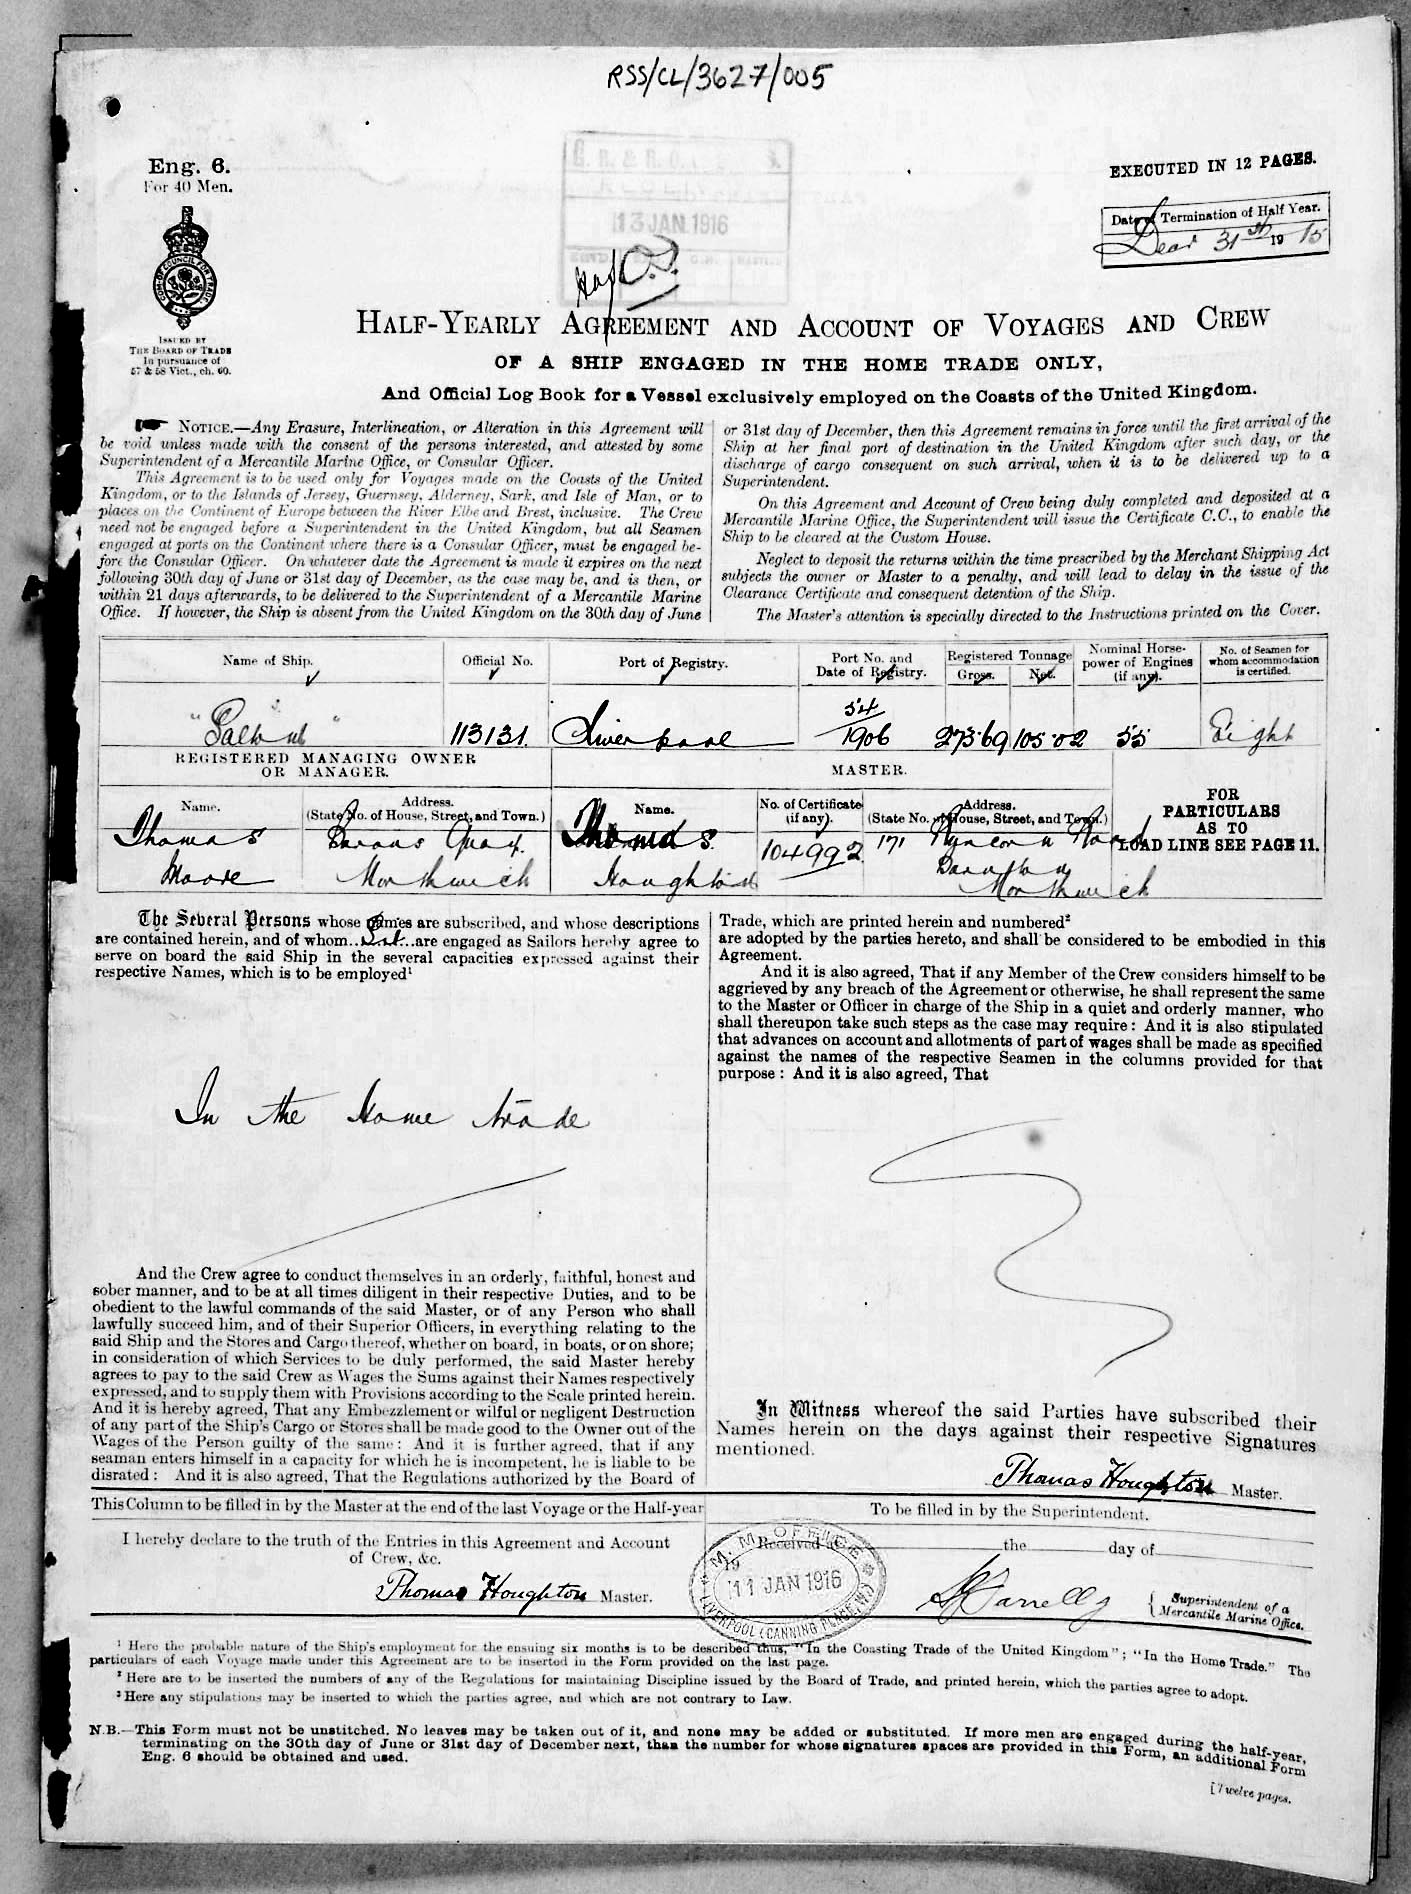 RSS/CL/3627/005
Eng. 6.
For 40 Men.
COM. OF COUNCIL FOR TRADE
ISSUED BY
THE BOARD OF TRADE
In pursuance of
57 & 58 Vict., ch. 60.
13 JAN 1916
EXECUTED IN 12 PAGES.
Date of Termination of Half Year.
Dec 31st 1915
HALF-YEARLY AGREEMENT AND ACCOUNT OF VOYAGES AND CREW
OF A SHIP ENGAGED IN THE HOME TRADE ONLY,
And Official Log Book for a Vessel exclusively employed on the Coasts of the United Kingdom.
NOTICE.—Any Erasure, Interlineation, or Alteration in this Agreement will
be void unless made with the consent of the persons interested, and attested by some
Superintendent of a Mercantile Marine Office, or Consular Officer.
This Agreement is to be used only for Voyages made on the Coasts of the United
Kingdom, or to the Islands of Jersey, Guernsey, Alderney, Sark, and Isle of Man, or to
places on the Continent of Europe between the River Elbe and Brest, inclusive. The Crew
need not be engaged before a Superintendent in the United Kingdom, but all Seamen
engaged at ports on the Continent where there is a Consular Officer, must be engaged be-
fore the Consular Officer. On whatever date the Agreement is made it expires on the next
following 30th day of June or 31st day of December, as the case may be, and is then, or
within 21 days afterwards, to be delivered to the Superintendent of a Mercantile Marine
Office. If however, the Ship is absent from the United Kingdom on the 30th day of June
or 31st day of December, then this Agreement remains in force until the first arrival of the
Ship at her final port of destination in the United Kingdom after such day, or the
discharge of cargo consequent on such arrival, when it is to be delivered up to a
Superintendent.
On this Agreement and Account of Crew being duly completed and deposited at a
Mercantile Marine Office, the Superintendent will issue the Certificate C.C., to enable the
Ship to be cleared at the Custom House.
Neglect to deposit the returns within the time prescribed by the Merchant Shipping Act
subjects the owner or Master to a penalty, and will lead to delay in the issue of the
Clearance Certificate and consequent detention of the Ship.
The Master's attention is specially directed to the Instructions printed on the Cover.
Name of Ship. Official No. Port of Registry. Port No. and Date of Registry. Registered Tonnage Gross. Net. Nominal Horse-power of Engines (if any). No. of Seamen for whom accommodation is certified.
113131. Liverpool 54/1906 273.69 105.02 55 Eight
REGISTERED MANAGING OWNER
OR MANAGER.
MASTER.
Name. Address. (State No. of House, Street, and Town.) Name. No. of Certificate (if any). Address. (State No. of House, Street, and Town.)
FOR
PARTICULARS
AS TO
LOAD LINE SEE PAGE 11.
Thomas Barons Quay. Thomas 104992 171 Runcorn Road
Moore Northwich Houghton Barnton
Northwich
The Several Persons whose names are subscribed, and whose descriptions
are contained herein, and of whom are engaged as Sailors hereby agree to
serve on board the said Ship in the several capacities expressed against their
respective Names, which is to be employed¹
In the Home trade
And the Crew agree to conduct themselves in an orderly, faithful, honest and
sober manner, and to be at all times diligent in their respective Duties, and to be
obedient to the lawful commands of the said Master, or of any Person who shall
lawfully succeed him, and of their Superior Officers, in everything relating to the
said Ship and the Stores and Cargo thereof, whether on board, in boats, or on shore;
in consideration of which Services to be duly performed, the said Master hereby
agrees to pay to the said Crew as Wages the Sums against their Names respectively
expressed, and to supply them with Provisions according to the Scale printed herein.
And it is hereby agreed, That any Embezzlement or wilful or negligent Destruction
of any part of the Ship's Cargo or Stores shall be made good to the Owner out of the
Wages of the Person guilty of the same: And it is further agreed, that if any
seaman enters himself in a capacity for which he is incompetent, he is liable to be
disrated: And it is also agreed, That the Regulations authorized by the Board of
Trade, which are printed herein and numbered²
are adopted by the parties hereto, and shall be considered to be embodied in this
Agreement.
And it is also agreed, That if any Member of the Crew considers himself to be
aggrieved by any breach of the Agreement or otherwise, he shall represent the same
to the Master or Officer in charge of the Ship in a quiet and orderly manner, who
shall thereupon take such steps as the case may require: And it is also stipulated
that advances on account and allotments of part of wages shall be made as specified
against the names of the respective Seamen in the columns provided for that
purpose: And it is also agreed, That
In Witness whereof the said Parties have subscribed their
Names herein on the days against their respective Signatures
mentioned.
Thomas Houghton Master.
This Column to be filled in by the Master at the end of the last Voyage or the Half-year
I hereby declare to the truth of the Entries in this Agreement and Account
of Crew, &c.
Thomas Houghton Master.
To be filled in by the Superintendent.
Received the day of
19
M. M. OFFICE
11 JAN 1916
LIVERPOOL (CANNING PLACE, W.)
Farrelly
Superintendent of a
Mercantile Marine Office.
¹ Here the probable nature of the Ship's employment for the ensuing six months is to be described thus, "In the Coasting Trade of the United Kingdom"; "In the Home Trade." The
particulars of each Voyage made under this Agreement are to be inserted in the Form provided on the last page.
² Here are to be inserted the numbers of any of the Regulations for maintaining Discipline issued by the Board of Trade, and printed herein, which the parties agree to adopt.
³ Here any stipulations may be inserted to which the parties agree, and which are not contrary to Law.
N.B.—This Form must not be unstitched. No leaves may be taken out of it, and none may be added or substituted. If more men are engaged during the half-year,
terminating on the 30th day of June or 31st day of December next, than the number for whose signatures spaces are provided in this Form, an additional Form
Eng. 6 should be obtained and used.
[Twelve pages.